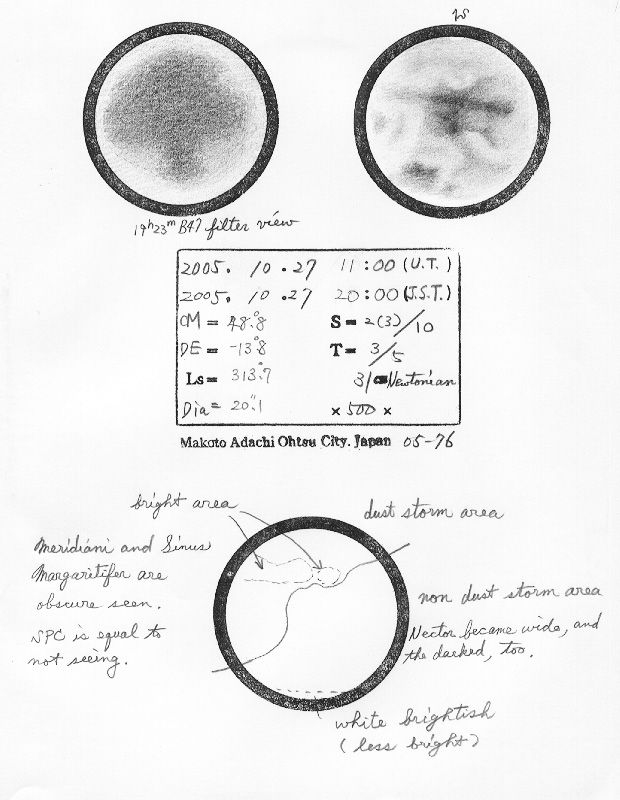 19h23m B47 filter view
2005. 10 .27 11:00 (U.T.)
2005. 10 .27 20:00 (J.S.T.)
CM = 48°.8 S = 2(3)/10
DE = -13°.8 T = 3/5
Ls = 313°.7 31 Newtonian
Dia = 20".1 × 500 ×
Makoto Adachi Ohtsu City. Japan 05-76
bright area
dust storm area
Meridiani and Sinus
Margaritifer are
obscure seen.
SPC is equal to
not seeing.
non dust storm area
Nector became wide, and
the darked, too.
white brightish
(less bright)